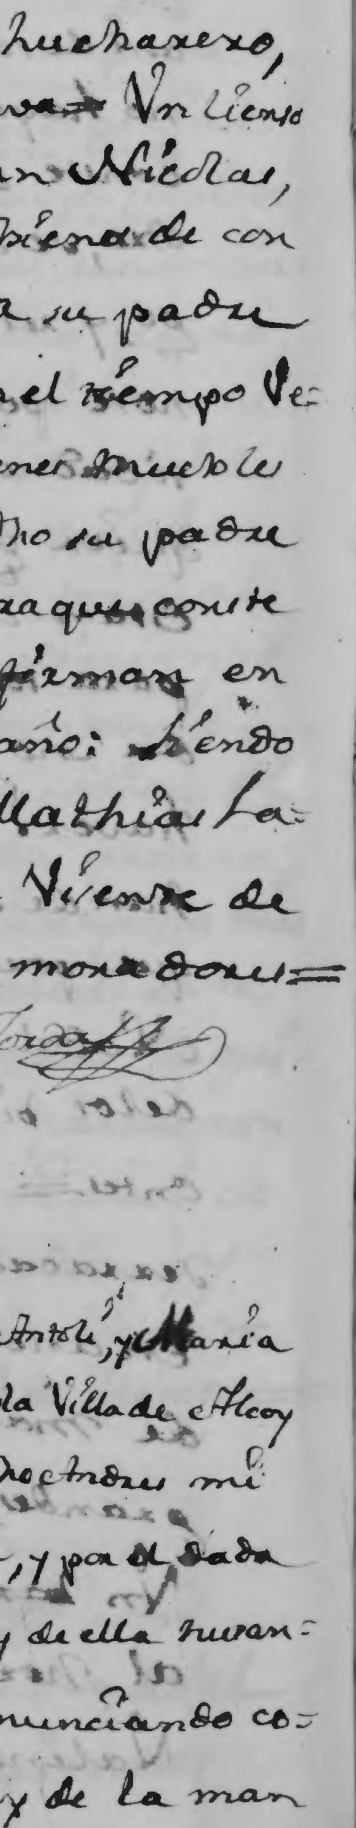 hucharero,
va= Vn lienso
an Nicolas,
hiena de con
a su padre
el tiempo Ve-
enes muebles
dho su padre
ra que conste
firman en
año: siendo
Mathias La-
Visente de
moradores=
Jorda
Antoli, y Maria
la Villa de Alcoy
dho Andres mi
, y por el dada
y de ella husan-
nunciando co-
y de la man